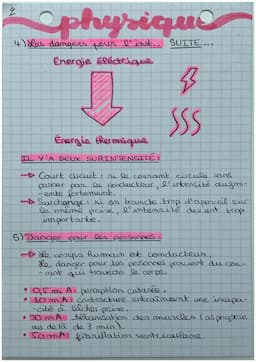 2
physique
4) Les dangers pour l'inst... SUITE...
Energie électrique
Energie thermique
IL Y'A DEUX SURINTENSITÉ:
→ Court circuit: si le courant circule sans
passer par le conducteur, l'intensité augm-
ente fortement.
→ Surcharge: si on branche trop d'appareil sur
la même prise, l'intensité devient trop
importante.
5) Danger pour les personnes:
→ Le corps humain est conducteur,
Le danger pour les personnes provient du cou-
rant qui traverse le corps.
• 0,5 mA: perception cutanée.
• 10 mA: contracture entraînant une incapa-
cité à lâcher prise.
• 30 mA: tétanisation des muscles (asphyxie
au delà de 3 min).
• 50 mA: fibrillation ventriculaire.